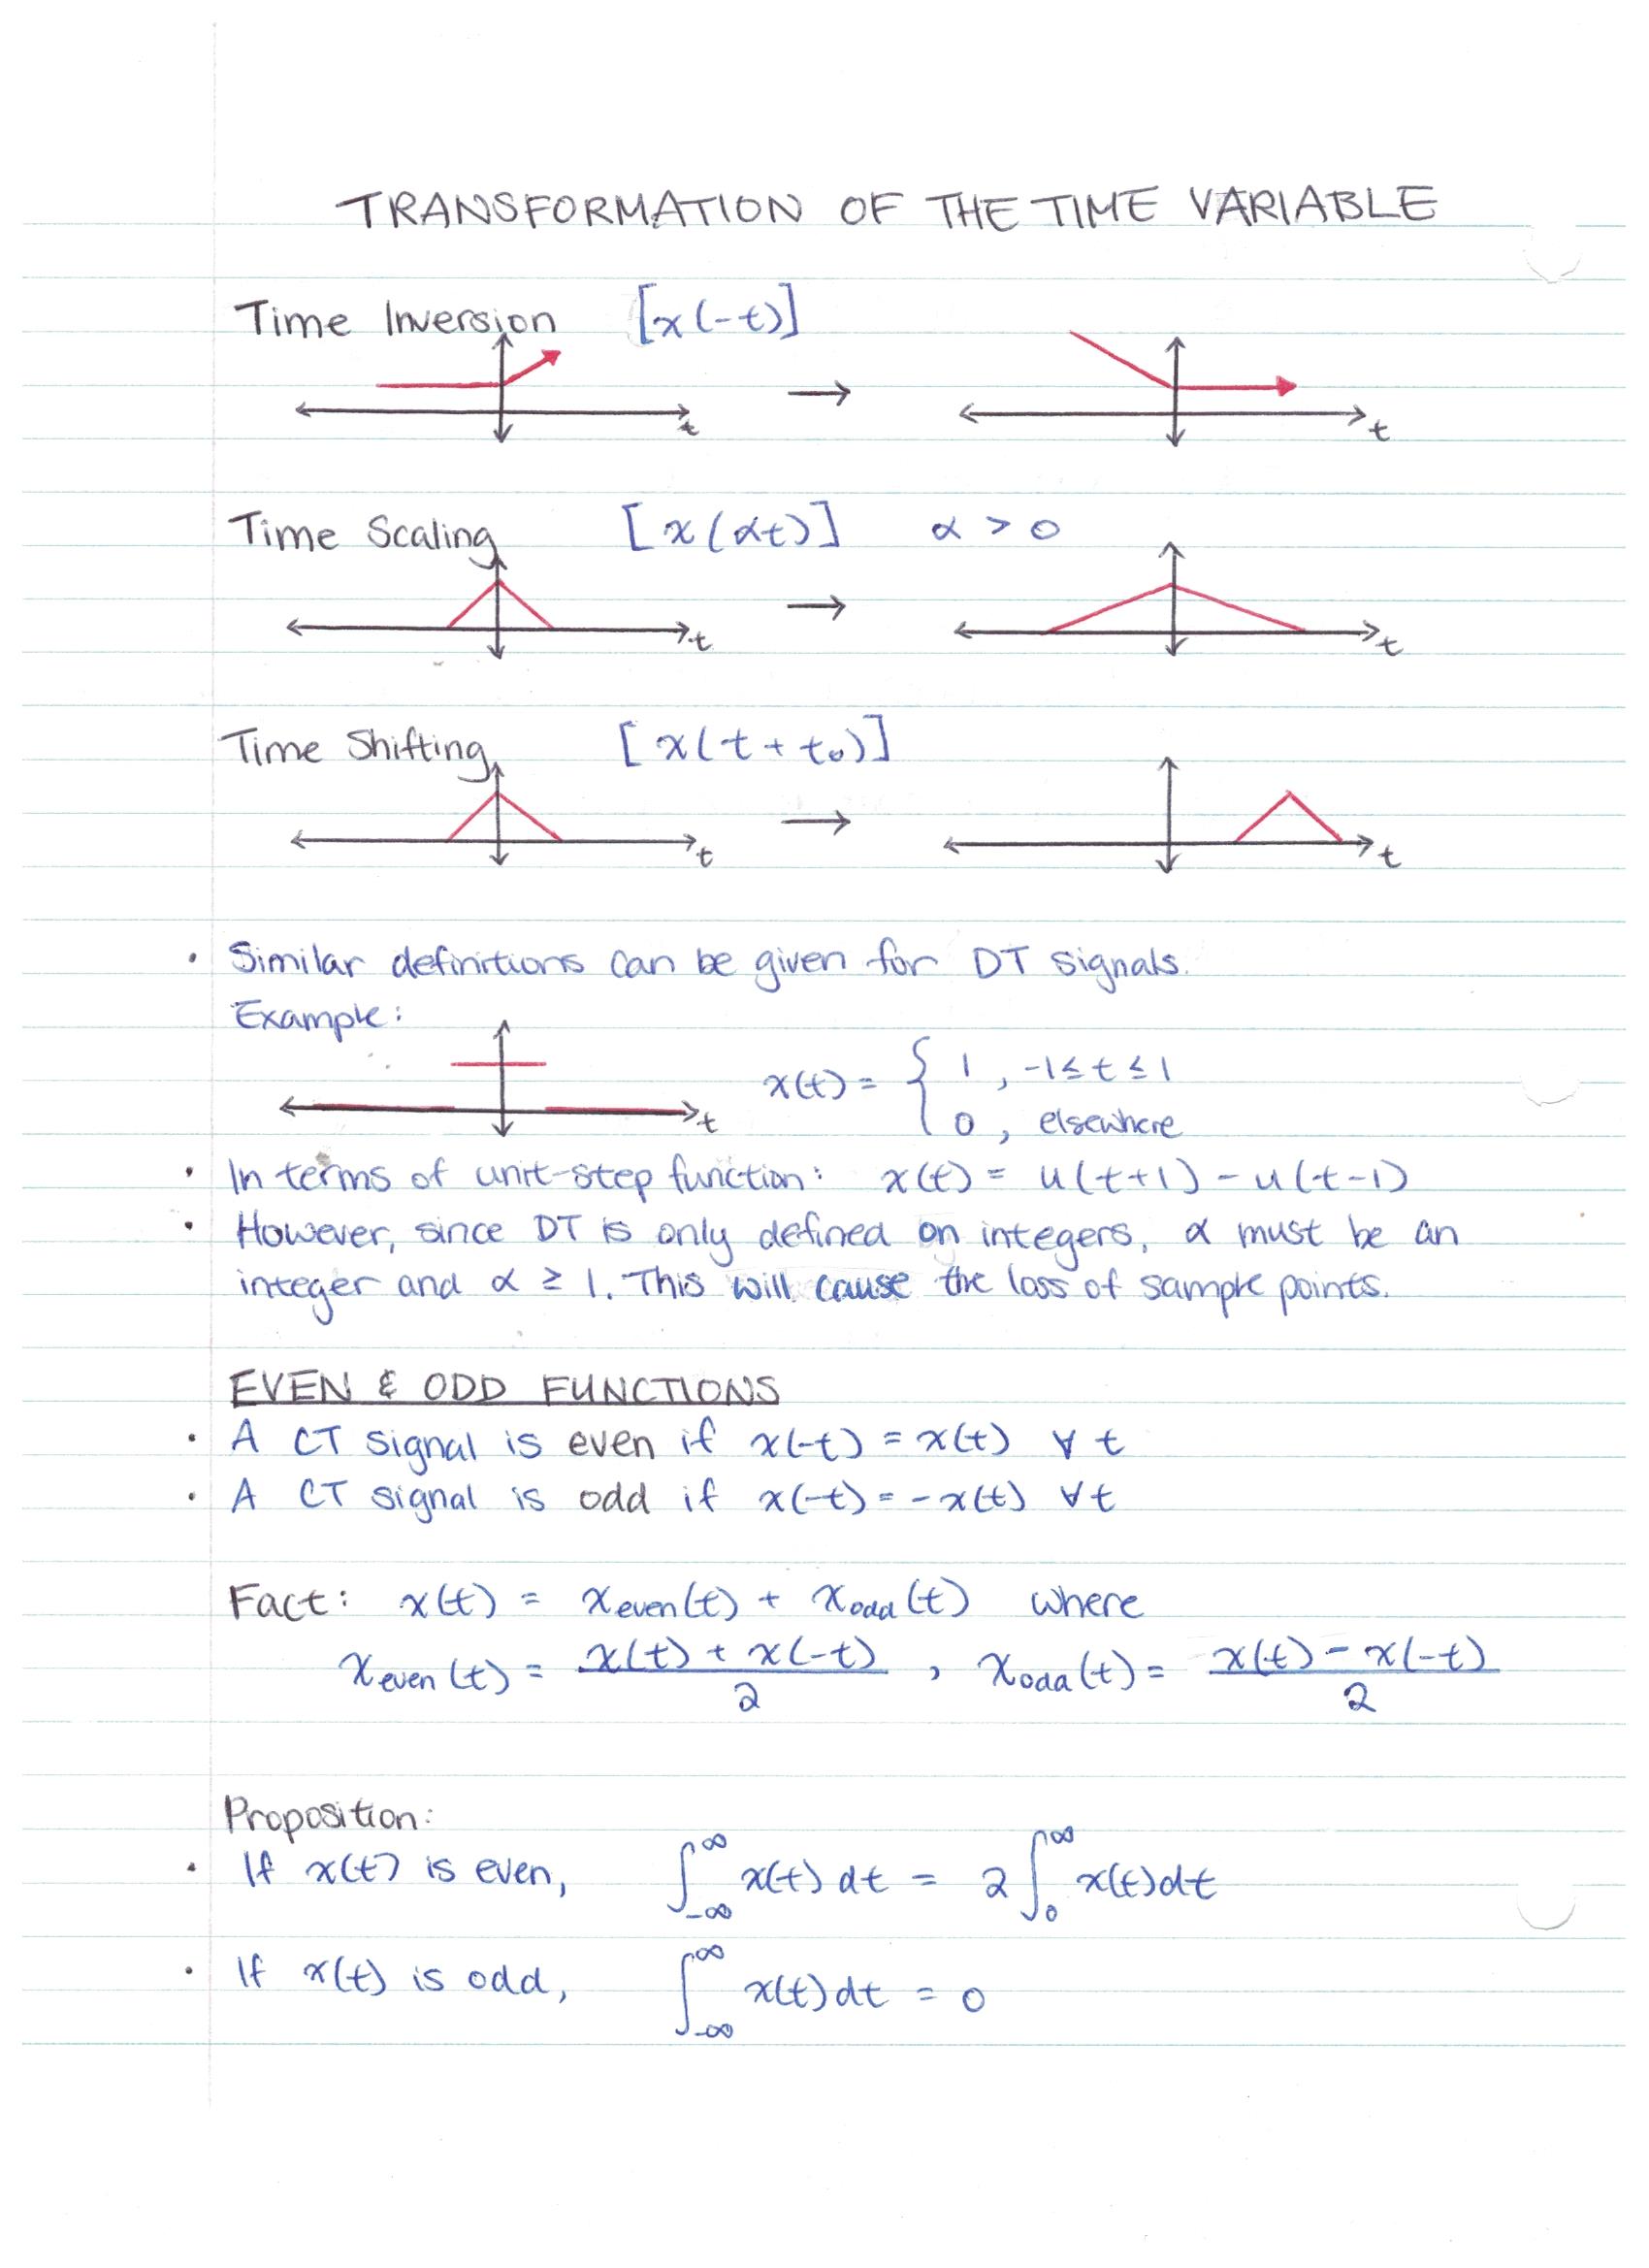 TRANSFORMATION OF THE TIME VARIABLE
Time Inversion [x(-t)]
t → t
Time Scaling [x(αt)] α > 0
t → t
Time Shifting [x(t + t₀)]
t → t
• Similar definitions can be given for DT signals.
Example:
t x(t) = { 1 , -1 ≤ t ≤ 1
0 , elsewhere
• In terms of unit-step function: x(t) = u(t+1) - u(t-1)
• However, since DT is only defined on integers, α must be an
integer and α ≥ 1. This will cause the loss of sample points.
EVEN & ODD FUNCTIONS
• A CT signal is even if x(-t) = x(t) ∀ t
• A CT signal is odd if x(-t) = -x(t) ∀ t
Fact: x(t) = x_even(t) + x_odd(t) where
x_even(t) = (x(t) + x(-t))/2 , x_odd(t) = (x(t) - x(-t))/2
Proposition:
• If x(t) is even, ∫_{-∞}^{∞} x(t) dt = 2∫_0^∞ x(t)dt
• If x(t) is odd, ∫_{-∞}^{∞} x(t)dt = 0